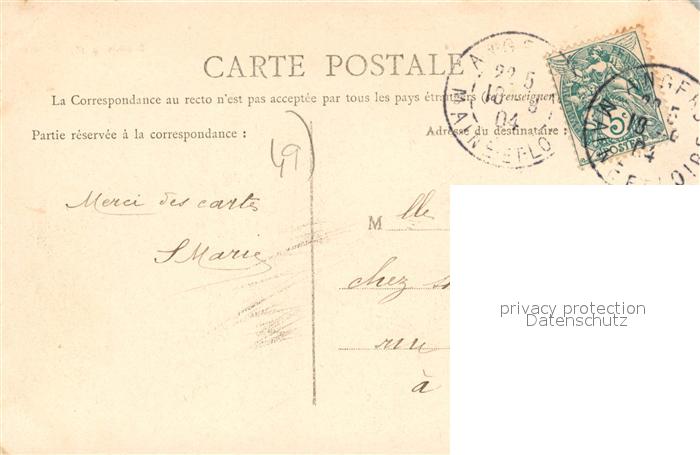 CARTE POSTALE
La Correspondance au recto n'est pas acceptée par tous les pays étrangers (se renseigner
Partie réservée à la correspondance :
Adresse du destinataire :
49
Merci des cartes
S Marie
M lle
chez
rue
à
ANGERS
22 5
10
04
MAINE-ET-LOIRE
5c
POSTES
ANGERS
10
04
MAINE-ET-LOIRE
privacy protection
Datenschutz